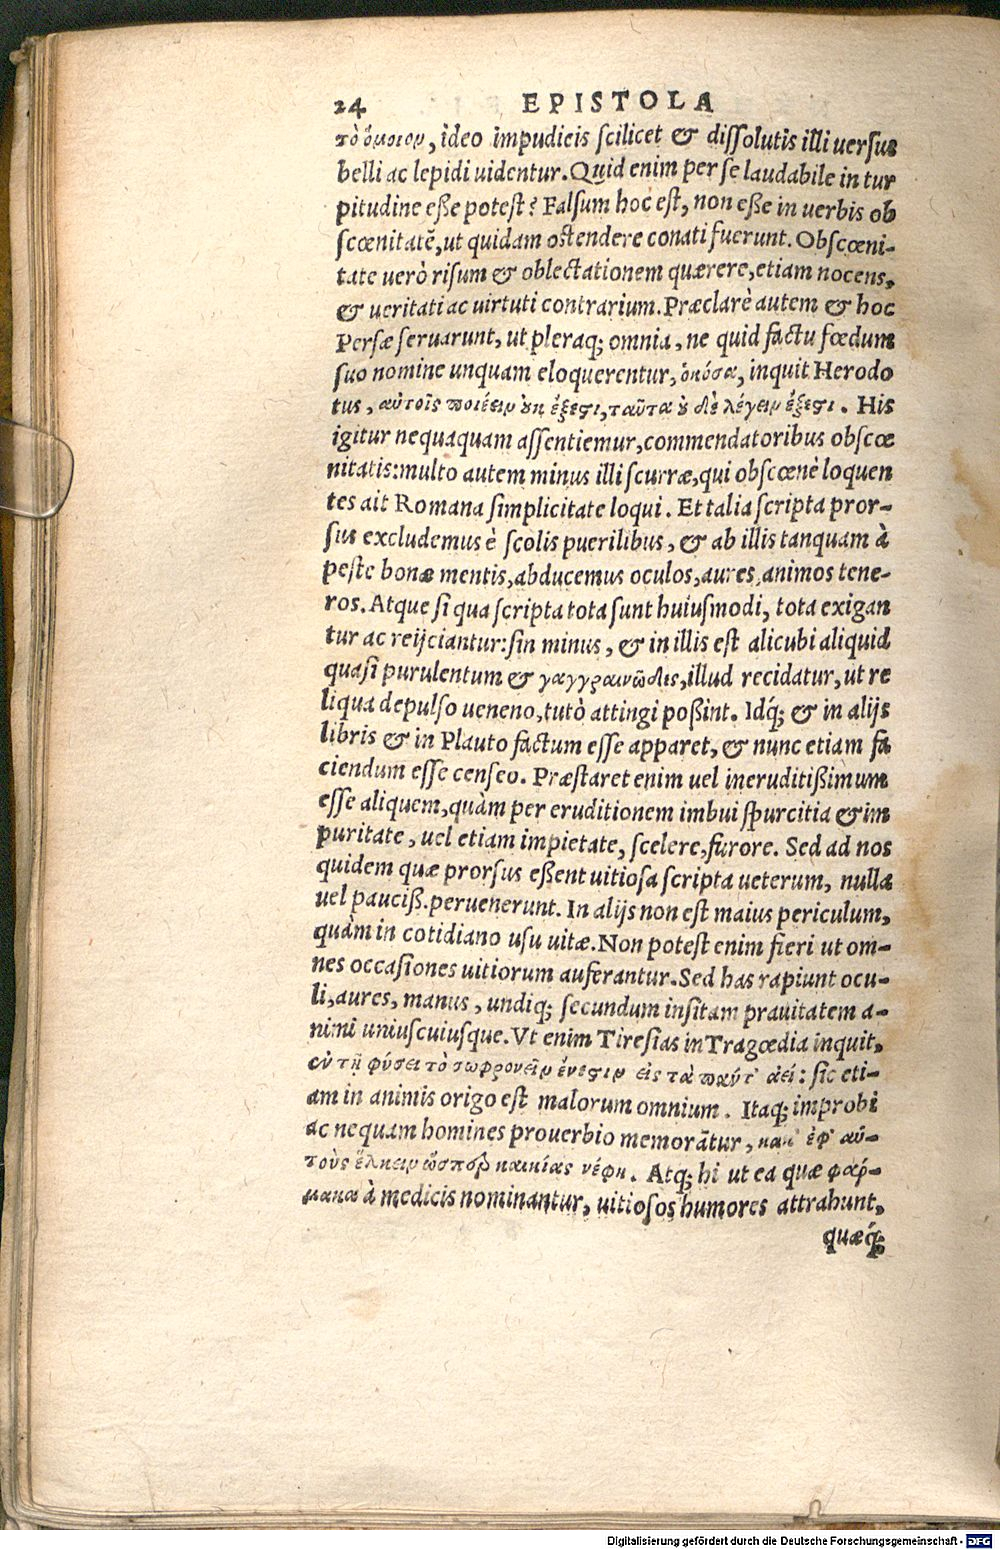 24 EPISTOLA
τὸ ὅμοιον, ideo impudicis scilicet & dissolutis illi uersus
belli ac lepidi uidentur. Quid enim per se laudabile in tur
pitudine eße potest? Falsum hoc est, non eße in uerbis ob
scœnitatẽ, ut quidam ostendere conati fuerunt. Obscœni-
tate uerò risum & oblectationem quærere, etiam nocens,
& ueritati ac uirtuti contrarium. Præclarè autem & hoc
Persæ seruarunt, ut pleraq; omnia, ne quid factu fœdum
suo nomine unquam eloquerentur, ὁκόσα, inquit Herodo
tus, αὐτοῖς ποιέειν οὐκ ἔξεστι, ταῦτα οὐδὲ λέγειν ἔξεστι. His
igitur nequaquam assentiemur, commendatoribus obscœ
nitatis: multo autem minus illi scurræ, qui obscœnè loquen
tes ait Romana simplicitate loqui. Et talia scripta pror-
sus excludemus è scolis puerilibus, & ab illis tanquam à
peste bonæ mentis, abducemus oculos, aures, animos tene-
ros. Atque si qua scripta tota sunt huiusmodi, tota exigan
tur ac reijciantur: sin minus, & in illis est alicubi aliquid
quasi purulentum & γαγγραινῶδες, illud recidatur, ut re
liqua depulso ueneno, tutò attingi poßint. Idq́; & in alijs
libris & in Plauto factum esse apparet, & nunc etiam fa
ciendum esse censeo. Præstaret enim uel ineruditißimum
esse aliquem, quàm per eruditionem imbui spurcitia & im
puritate, uel etiam impietate, scelere, furore. Sed ad nos
quidem quæ prorsus eßent uitiosa scripta ueterum, nulla
uel pauciß. peruenerunt. In alijs non est maius periculum,
quàm in cotidiano usu uitæ. Non potest enim fieri ut om-
nes occasiones uitiorum auferantur. Sed has rapiunt ocu-
li, aures, manus, undiq; secundum insitam prauitatem a-
nimi uniuscuiusque. Vt enim Tiresias in Tragœdia inquit,
ἐν τῇ φύσει τὸ σωφρονεῖν ἔνεστιν εἰς τὰ πάντ' ἀεί: sic eti-
am in animis origo est malorum omnium. Itaq; improbi
ac nequam homines prouerbio memorãtur, κακ' ἐφ' αὑ-
τοὺς ἕλκειν ὥσπερ καικίας νέφη. Atq; hi ut ea quæ φάρ-
μακα à medicis nominantur, uitiosos humores attrahunt,
quæq́;
Digitalisierung gefördert durch die Deutsche Forschungsgemeinschaft - DFG